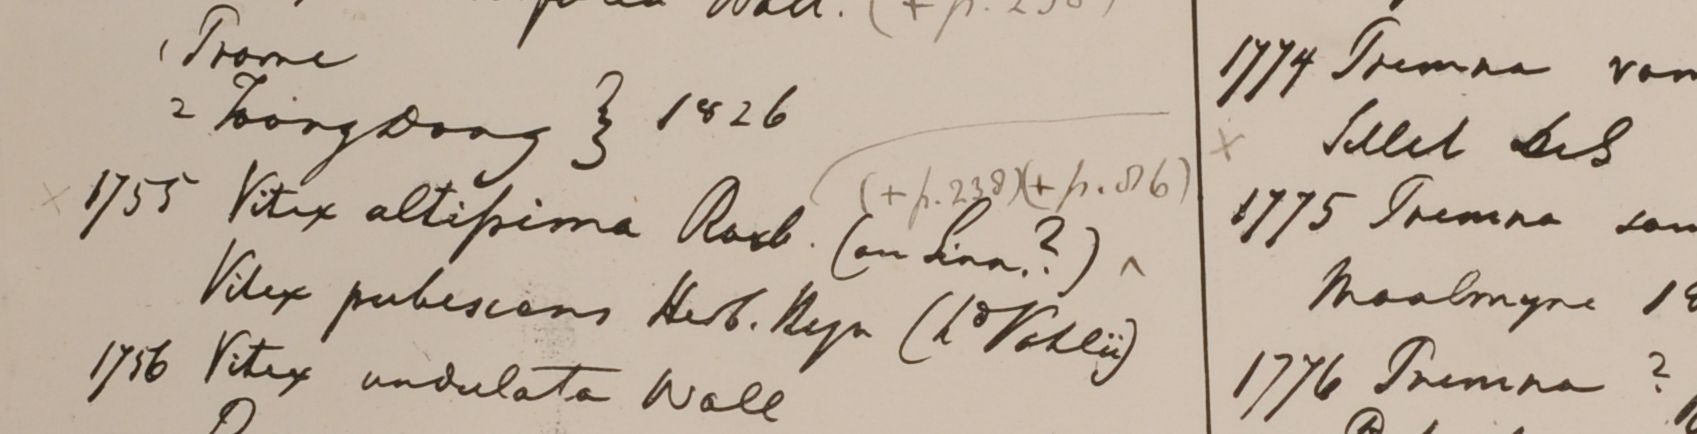 Wall. (+ p. 238)
1 Prome
2 Toong Dong } 1826
1755 Vitex altissima Roxb. (an Linn.?) ^ (+ p. 238)(+ p. 86)
Vitex pubescens Herb. Heyn (hd Vahlii)
1756 Vitex undulata Wall
1774 Premna
Sillet DeS
1775 Premna
Moalmyne 18
1776 Premna ?